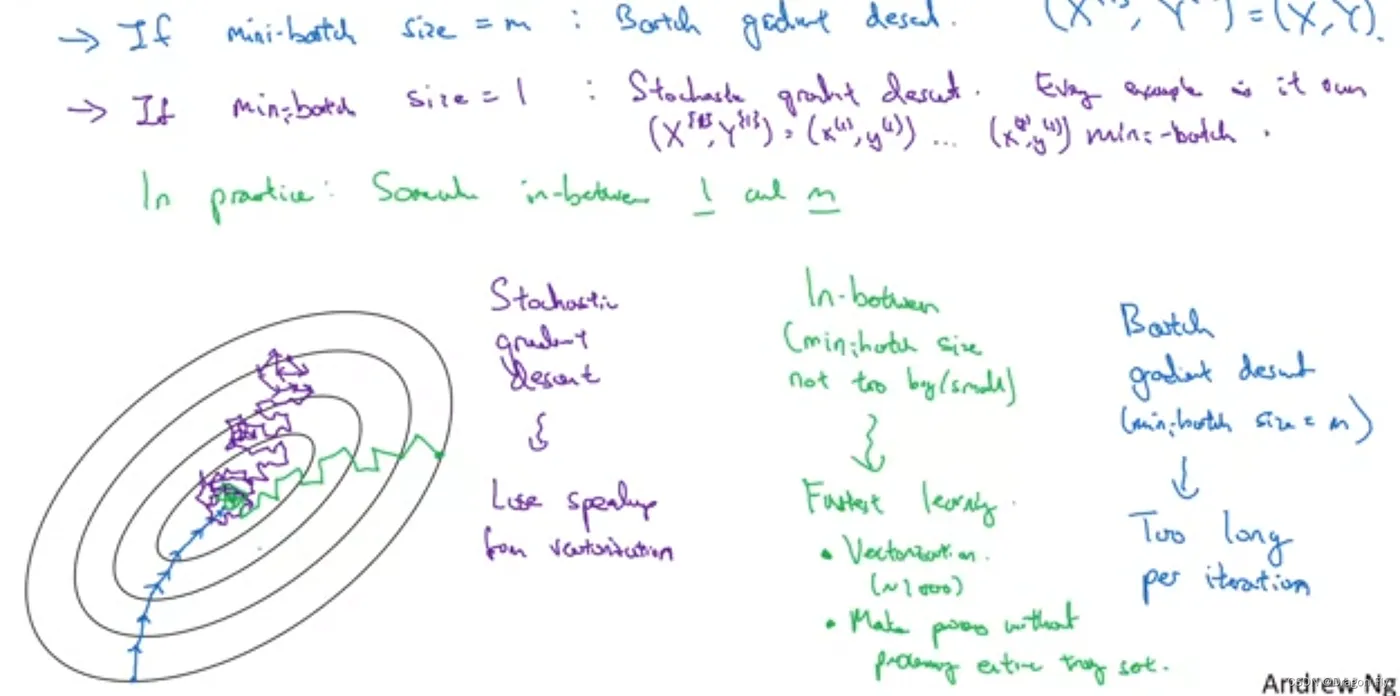 → If mini-batch size = m : Batch gradient descent. (X^{1}, Y^{1}) = (X, Y).
→ If mini-batch size = 1 : Stochastic gradient descent. Every example is it own
(X^{1}, Y^{1}) = (x^(1), y^(1)) ... mini-batch.
In practice: Somewhere in-between 1 and m
Stochastic
gradient
descent
Lose speedup
from vectorization
In-between
(mini-batch size
not too big/small)
Fastest learning.
• Vectorization.
(~1000)
• Make progress without
processing entire training set.
Batch
gradient descent
(mini-batch size = m)
Too long
per iteration
Andrew Ng